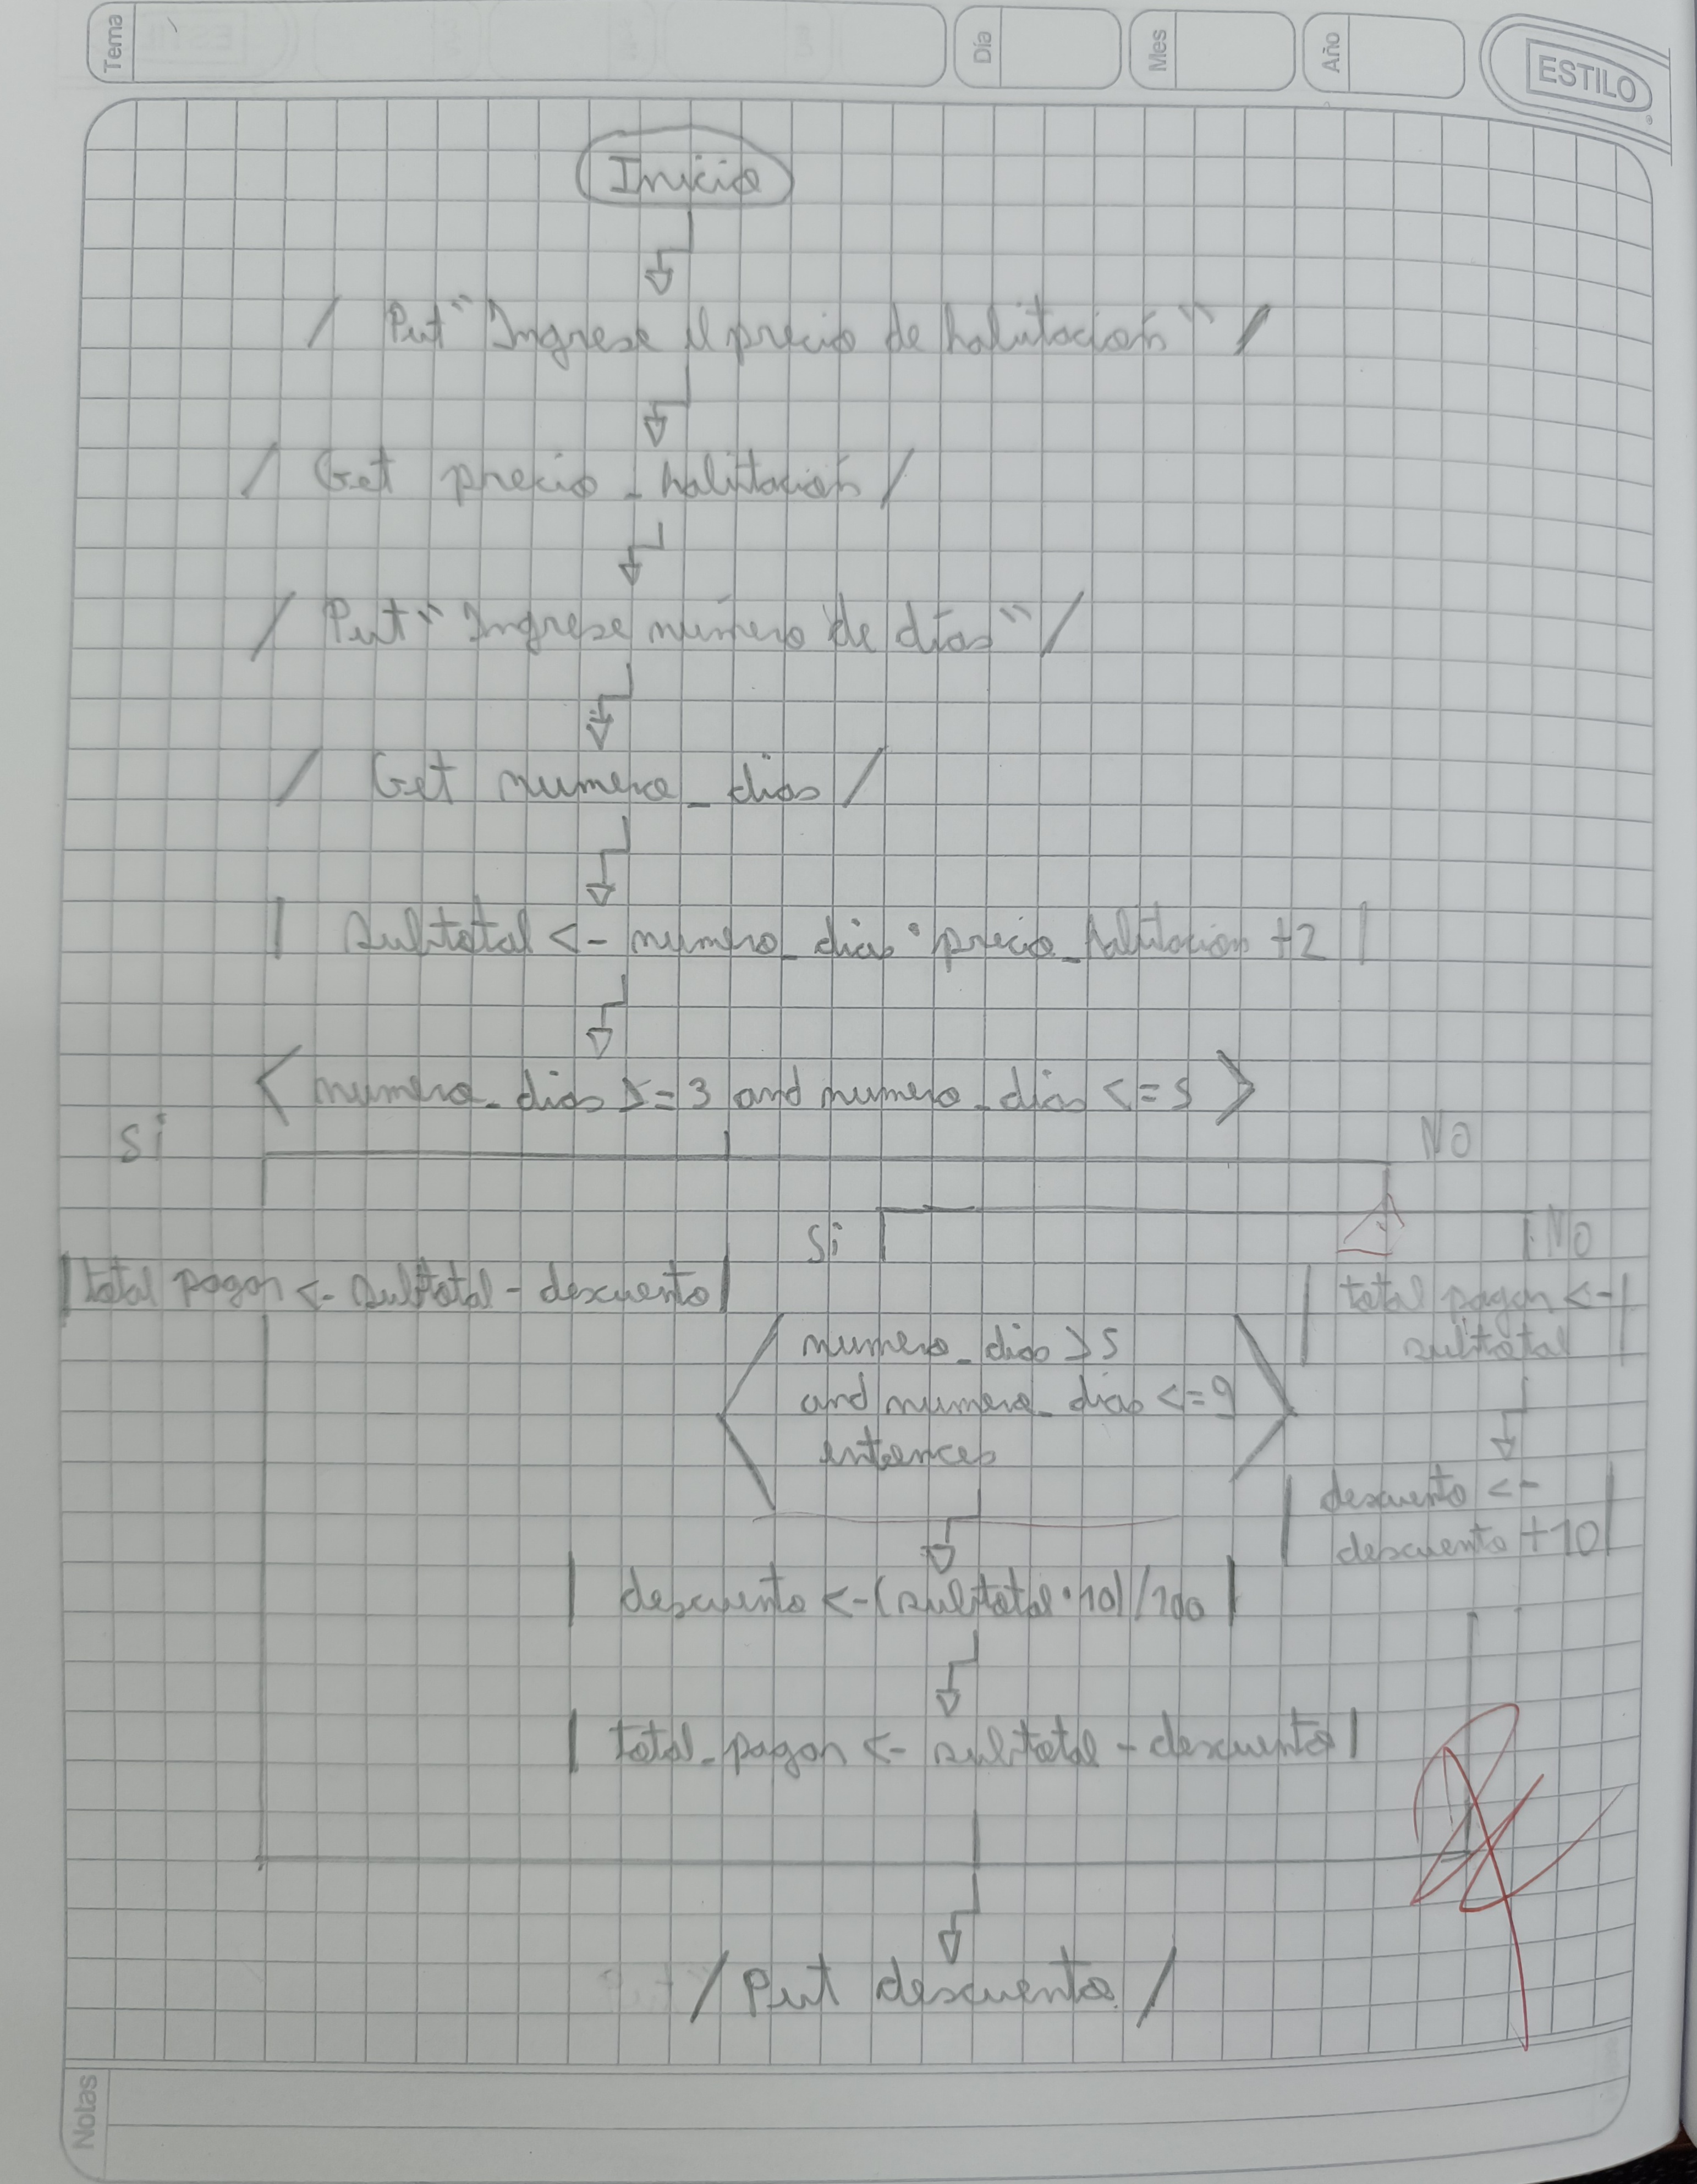 Tema
Día
Mes
Año
ESTILO
Inicio
/ Put "Ingrese el precio de habitación" /
/ Get precio_habitación /
/ Put "Ingrese número de días" /
/ Get numero_dias /
| subtotal <- numero_dias * precio_habitacion +2 |
< numero_dias >=3 and numero_dias <=5 >
Si
No
Si
No
| total pagar <- subtotal - descuento |
| total pagar <- |
subtotal
numero_dias >5
and numero_dias <=9
entonces
descuento <-
descuento +10
| descuento <- (subtotal * 10)/100 |
| total_pagar <- subtotal - descuento |
/ Put descuento /
Notas